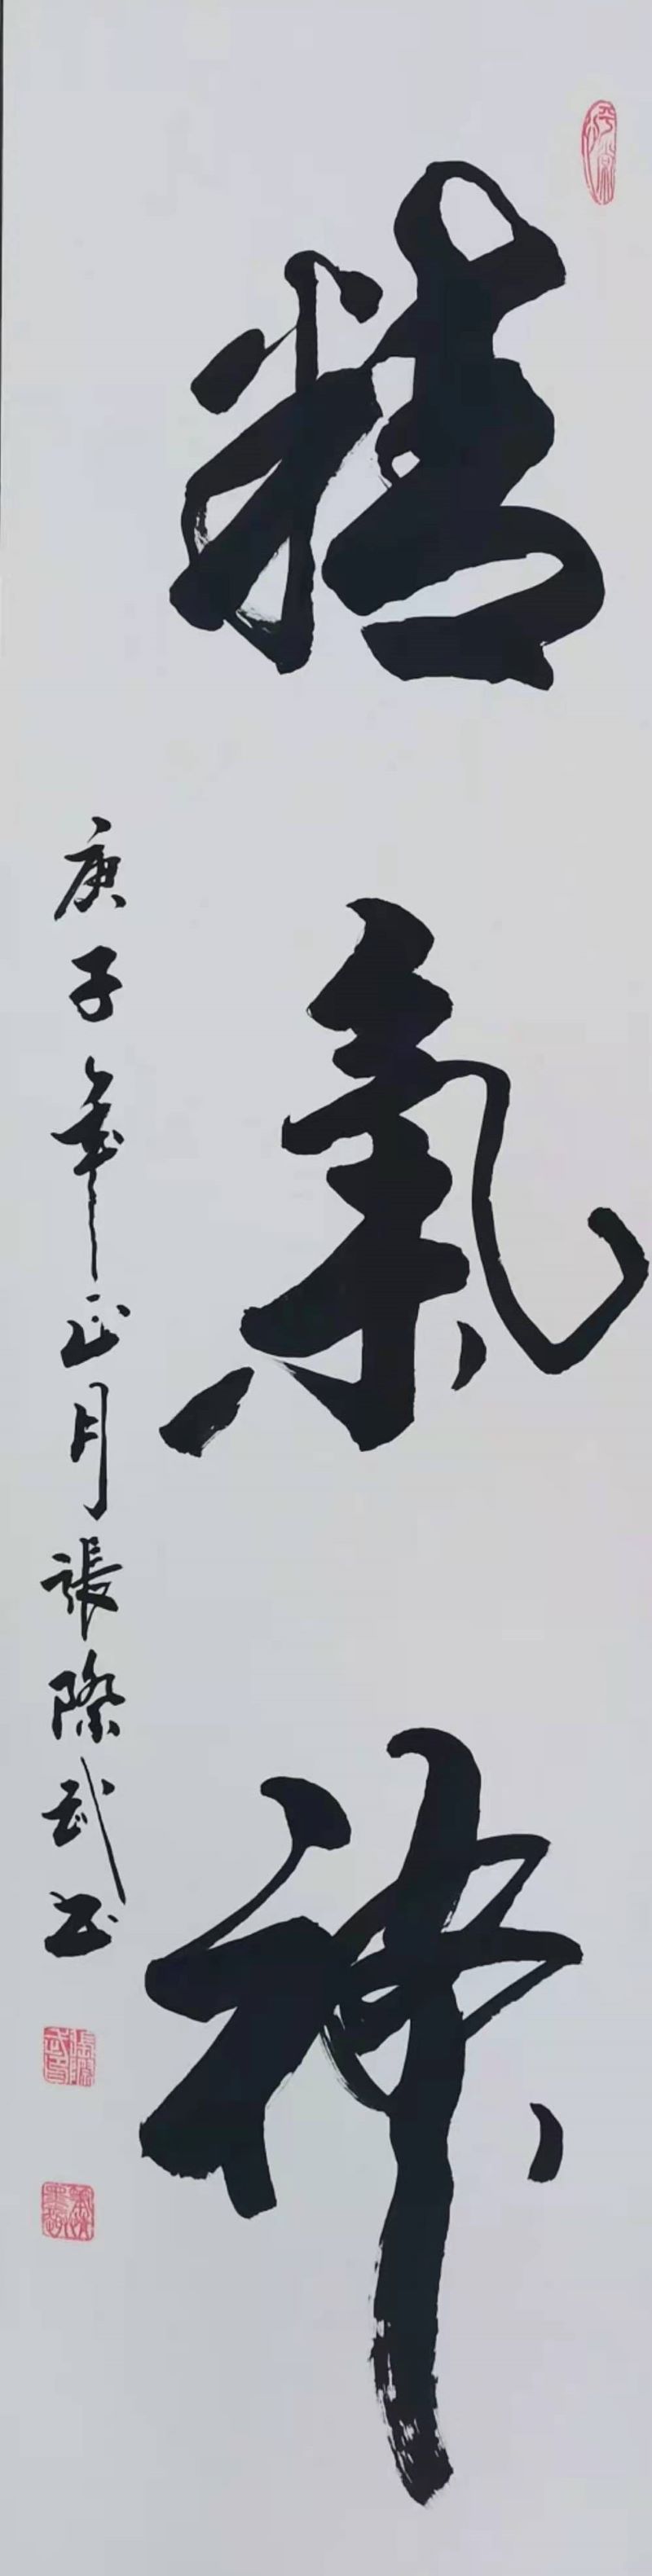 精氣神
庚子年正月張際武书